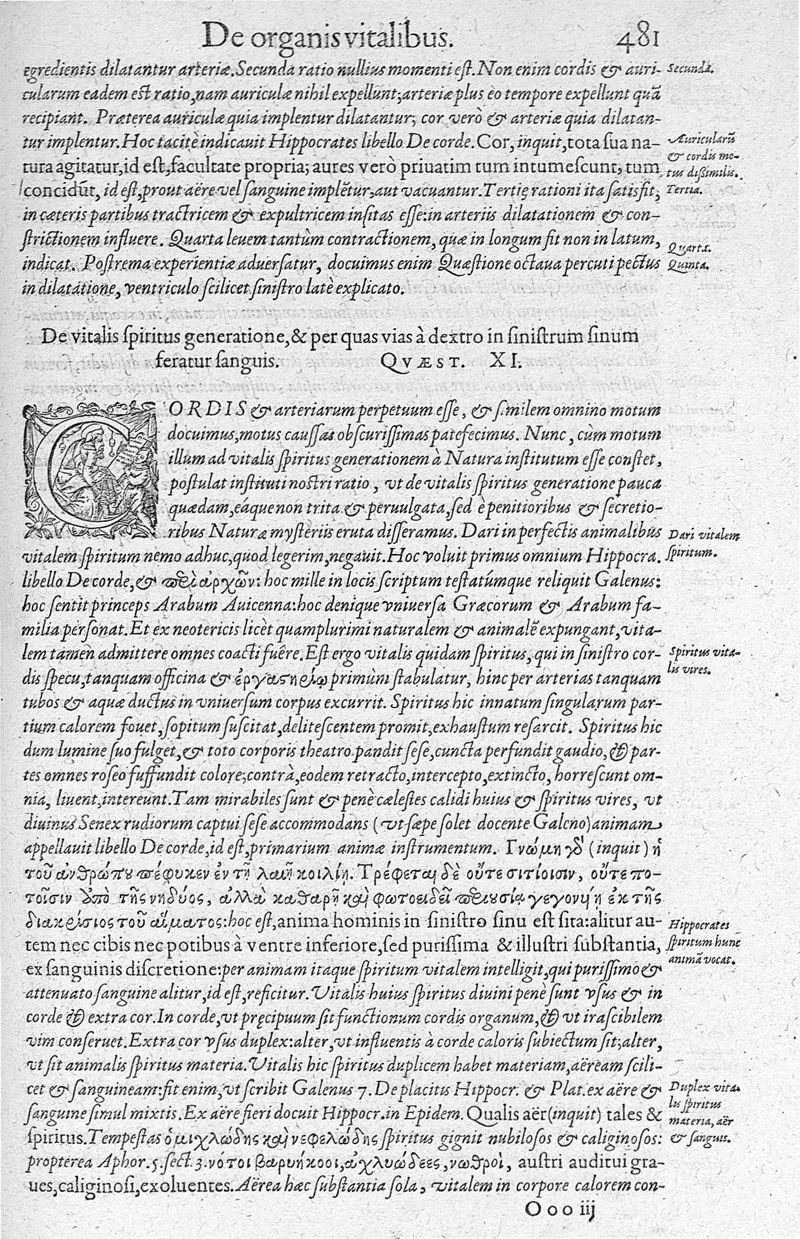 De organis vitalibus. 481
egredientis dilatantur arteriæ. Secunda ratio nullius momenti est. Non enim cordis & auri-
cularum eadem est ratio, nam auriculæ nihil expellunt, arteriæ plus eo tempore expellunt quā
recipiant. Præterea auriculæ quia implentur dilatantur; cor verò & arteriæ quia dilatan-
tur implentur. Hoc tacitè indicauit Hippocrates libello De corde. Cor, inquit, tota sua na-
tura agitatur, id est, facultate propria; aures verò priuatim tum intumescunt, tum
concidūt, id est, prout aëre vel sanguine implētur, aut vacuantur. Tertię rationi ita satisfit;
in cæteris partibus tractricem & expultricem insitas esse: in arteriis dilatationem & con-
strictionem influere. Quarta leuem tantùm contractionem, quæ in longum fit non in latum,
indicat. Postrema experientiæ aduersatur, docuimus enim Quæstione octaua percuti pectus
in dilatatione, ventriculo scilicet sinistro latè explicato.
Secunda.
Auricularū
& cordis mo-
tus dißimilis.
Tertia.
Quarta.
Quinta.
De vitalis spiritus generatione, & per quas vias à dextro in sinistrum sinum
feratur sanguis. QVÆST. XI.
CORDIS & arteriarum perpetuum esse, & similem omnino motum
docuimus, motus caussas obscurissimas patefecimus. Nunc, cùm motum
illum ad vitalis spiritus generationem à Natura institutum esse constet,
postulat instituti nostri ratio, vt de vitalis spiritus generatione pauca
quædam, eáque non trita & peruulgata, sed è penitioribus & secretio-
ribus Naturæ mysteriis eruta disseramus. Dari in perfectis animalibus
vitalem spiritum nemo adhuc, quod legerim, negauit. Hoc voluit primus omnium Hippocra.
libello De corde, & περὶ ἀρχῶν: hoc mille in locis scriptum testatúmque reliquit Galenus:
hoc sentit princeps Arabum Auicenna: hoc denique vniuersa Græcorum & Arabum fa-
milia personat. Et ex neotericis licèt quamplurimi naturalem & animalē expungant, vita-
lem tamen admittere omnes coacti fuêre. Est ergo vitalis quidam spiritus, qui in sinistro cor-
dis specu, tanquam officina & ἐργαστηρίῳ primùm stabulatur, hinc per arterias tanquam
tubos & aquæ ductus in vniuersum corpus excurrit. Spiritus hic innatum singularum par-
tium calorem fouet, sopitum suscitat, delitescentem promit, exhaustum resarcit. Spiritus hic
dum lumine suo fulget, & toto corporis theatro pandit sese, cuncta perfundit gaudio, & par-
tes omnes roseo suffundit colore; contrà, eodem retracto, intercepto, extincto, horrescunt om-
nia, liuent, intereunt. Tam mirabiles sunt & penè cælestes calidi huius & spiritus vires, vt
diuinus Senex rudiorum captui sese accommodans (vt sæpe solet docente Galeno) animam
appellauit libello De corde, id est, primarium animæ instrumentum. Γνώμη γὰρ (inquit) ἡ
τοῦ ἀνθρώπου πέφυκεν ἐν τῇ λαιῇ κοιλίῃ. Τρέφεται δὲ οὔτε σιτίοισιν, οὔτε πο-
τοῖσιν ὑπὸ τῆς νηδύος, ἀλλὰ καθαρῇ καὶ φωτοειδεῖ περιουσίῃ γεγονυίῃ ἐκ τῆς
διακρίσιος τοῦ αἵματος: hoc est, anima hominis in sinistro sinu est sita: alitur au-
tem nec cibis nec potibus à ventre inferiore, sed purissima & illustri substantia,
ex sanguinis discretione: per animam itaque spiritum vitalem intelligit, qui purissimo &
attenuato sanguine alitur, id est, reficitur. Vitalis huius spiritus diuini penè sunt vsus & in
corde & extra cor. In corde, vt pręcipuum sit functionum cordis organum, & vt irascibilem
vim conseruet. Extra cor vsus duplex: alter, vt influentis à corde caloris subiectum sit; alter,
vt sit animalis spiritus materia. Vitalis hic spiritus duplicem habet materiam, aëream scili-
cet & sanguineam: fit enim, vt scribit Galenus 7. De placitus Hippocr. & Plat. ex aëre &
sanguine simul mixtis. Ex aëre fieri docuit Hippocr. in Epidem. Qualis aër (inquit) tales &
spiritus. Tempestas ὁμιχλώδης καὶ νεφελώδης spiritus gignit nubilosos & caliginosos:
propterea Aphor. 5. sect. 3. νότοι βαρυήκοοι, ἀχλυώδεες, νωθροὶ, austri auditui gra-
ues, caliginosi, exoluentes. Aërea hæc substantia sola, vitalem in corpore calorem con-
Dari vitalem
spiritum.
Spiritus vita-
lis vires.
Hippocrates
spiritum hunc
animā vocat.
Duplex vita-
lis spiritus
materia, aër
& sanguis.
Ooo iij